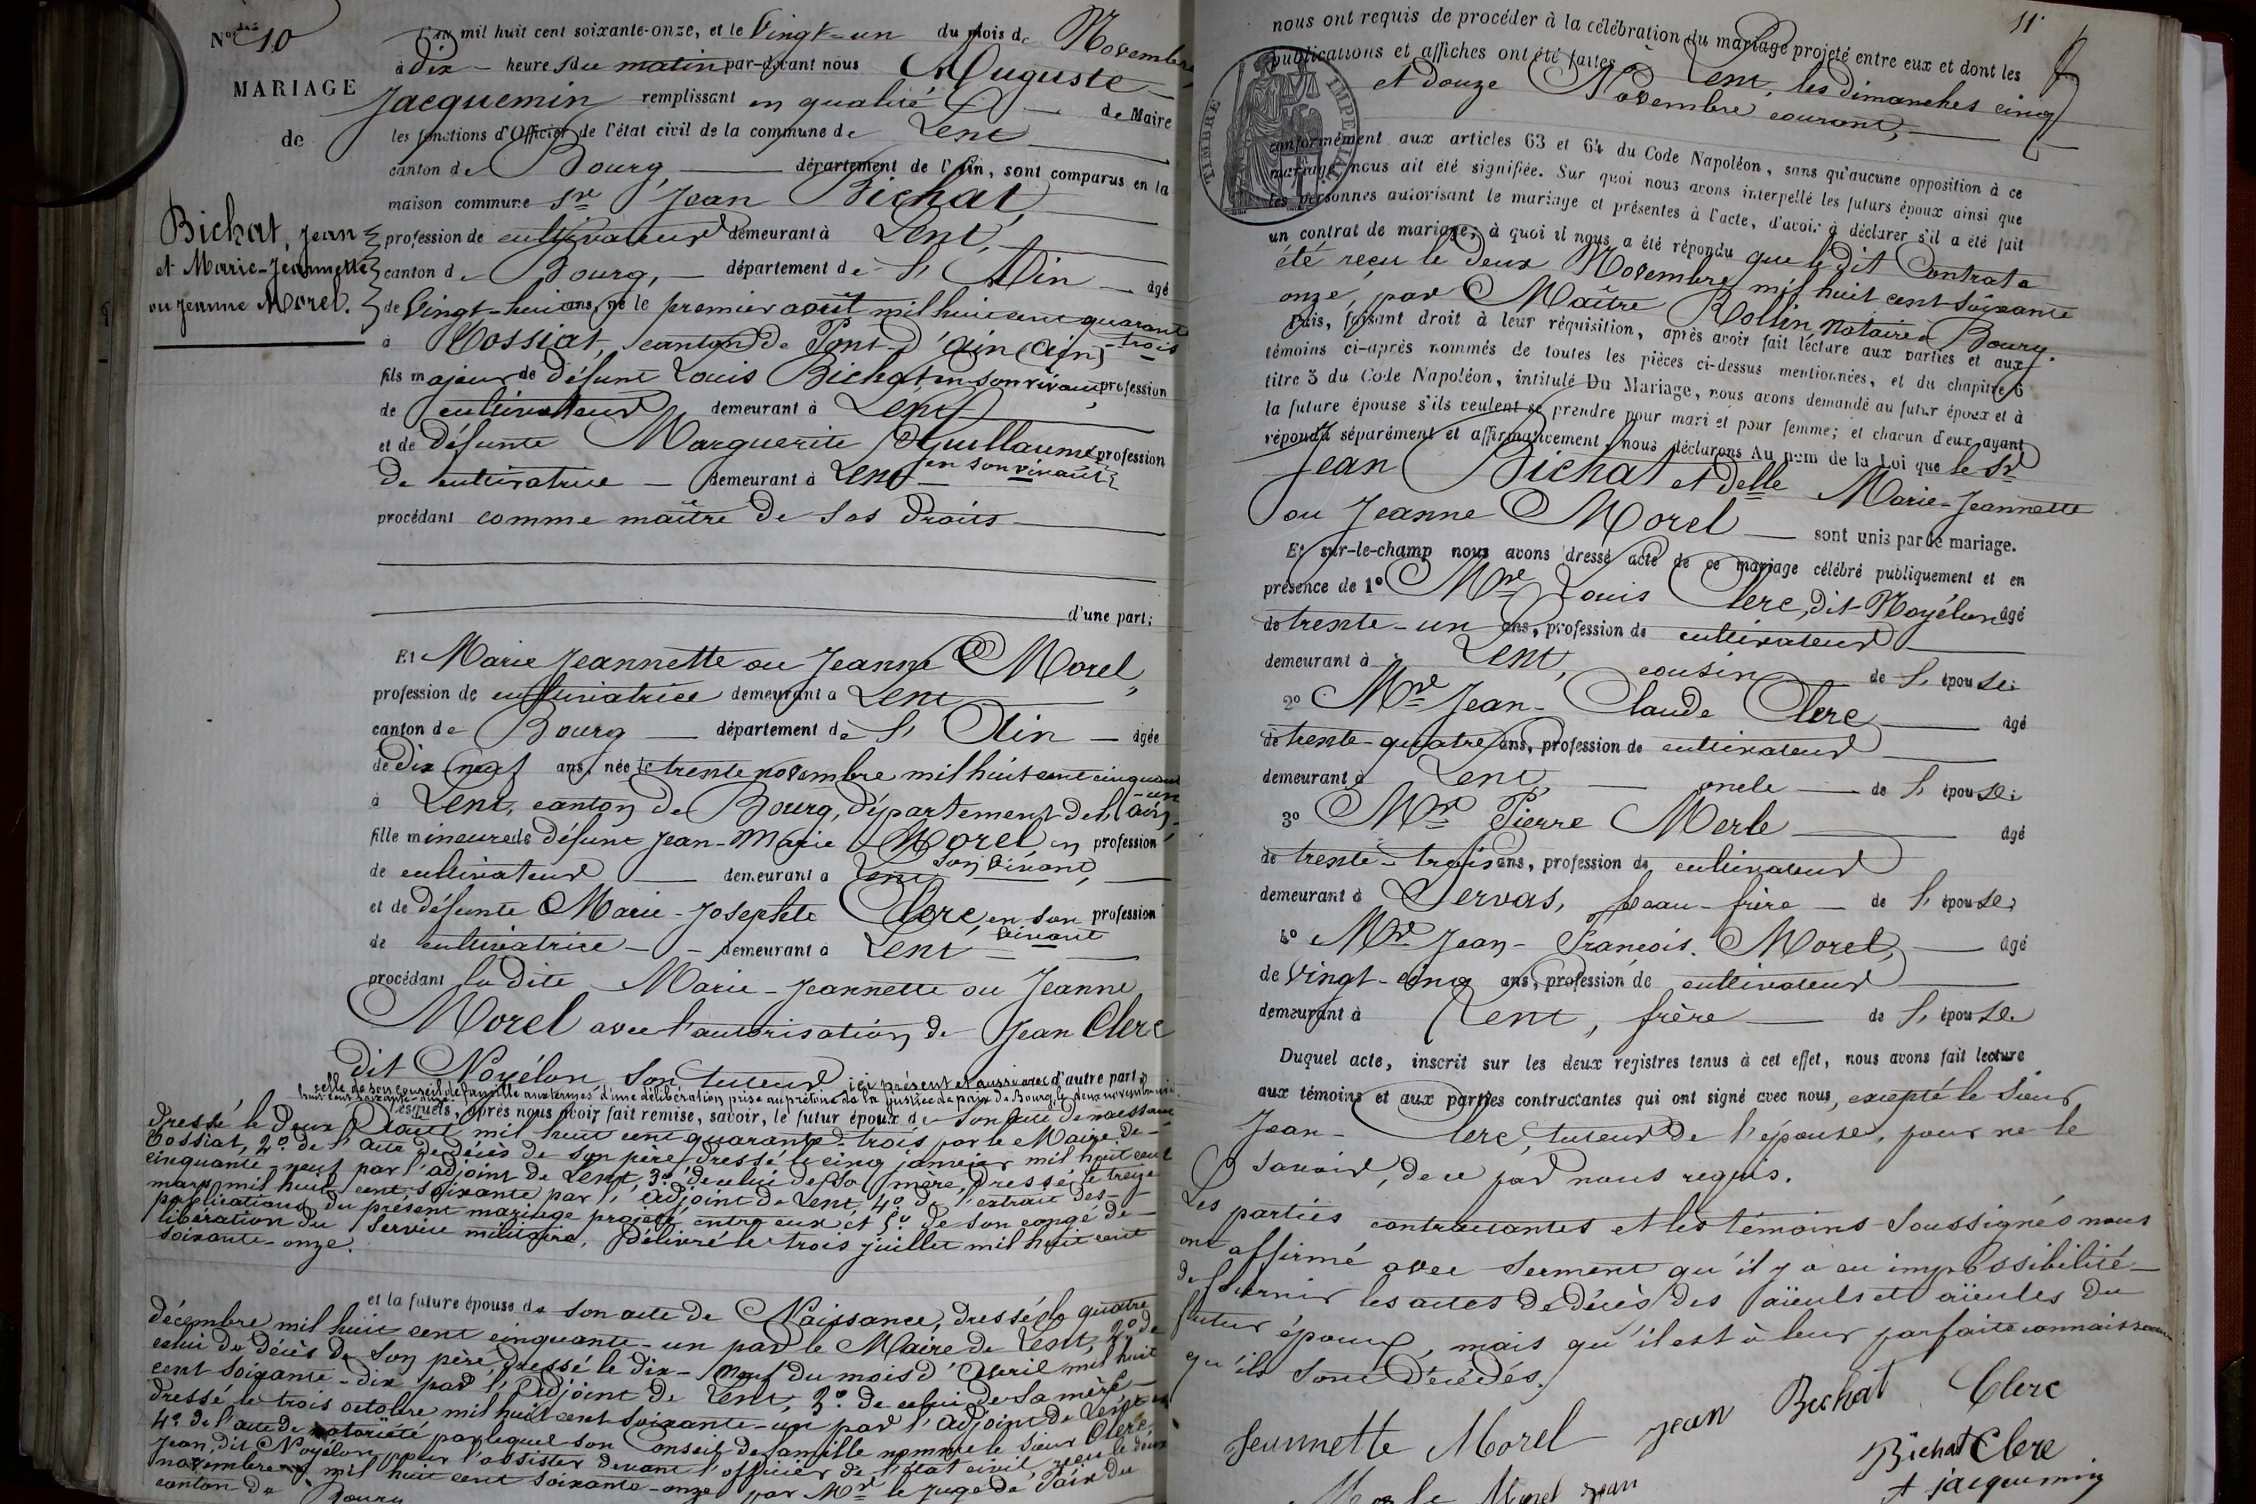 N° 10
MARIAGE
de
Bichat, Jean
et Marie-Jeannette
ou Jeanne Morel.
L'an mil huit cent soixante-onze, et le Vingt-un du mois de Novembre
à Dix heures du matin par-devant nous Auguste
Jacquemin remplissant en qualité de Maire
les fonctions d'Officier de l'état civil de la commune de Lent
canton de Bourg, département de l'Ain, sont comparus en la
maison commune Sr Jean Bichat,
profession de cultivateur demeurant à Lent,
canton de Bourg, département de l'Ain âgé
de Vingt-huit ans, né le premier août mil huit cent quarante
-trois
à Tossiat, canton de Pont-d'Ain (Ain)
fils majeur de défunt Louis Bichat en son vivant, profession
de cultivateur demeurant à Lent
et de défunte Marguerite Guillaume, profession
en son vivant
de cultivatrice demeurant à Lent
procédant comme maître de ses droits
d'une part;
Et Marie Jeannette ou Jeanne Morel,
profession de cultivatrice demeurant à Lent
canton de Bourg département de l'Ain âgée
de Dix neuf ans, née le trente novembre mil huit cent cinquante
-un
à Lent, canton de Bourg, département de l'Ain,
fille mineure de défunt Jean-Marie Morel en profession
son vivant,
de cultivateur demeurant à Lent
et de défunte Marie-Josephte Clerc, en son profession
vivant
de cultivatrice demeurant à Lent
procédant la dite Marie-Jeannette ou Jeanne
Morel avec l'autorisation de Jean Clerc
dit Noyélon son tuteur ici présent et aussi avec d'autre part;
celle de son conseil de famille aux termes d'une délibération prise au prétoire de la justice de paix de Bourg, le deux novembre mil
huit cent soixante-onze
lesquels, après nous avoir fait remise, savoir, le futur époux de son acte de naissance
dressé le deux août mil huit cent quarante-trois par le Maire de
Tossiat, 2° de l'acte de décès de son père, dressé le cinq janvier mil huit cent
cinquante-neuf par l'adjoint de Lent, 3° de celui de sa mère, dressé le treize
mars mil huit cent soixante par l'adjoint de Lent, 4° de l'extrait des
publications du présent mariage projeté entre eux et 5° de son congé de
libération du service militaire, délivré le trois juillet mil huit cent
soixante-onze.
et la future épouse de son acte de Naissance, dressé le quatre
décembre mil huit cent cinquante-un par le Maire de Lent, 2° de
celui de décès de son père, dressé le dix-neuf du mois d'avril mil huit
cent soixante-dix par l'adjoint de Lent, 3° de celui de sa mère
dressé le trois octobre mil huit cent soixante-un par l'adjoint de Lent et
4° de l'acte de notoriété par lequel son Conseil de famille nomme le sieur Clerc
Jean, dit Noyélon, pour l'assister devant l'officier de l'état civil, reçu le deux
novembre mil huit cent soixante-onze par Mr le Juge de Paix du
canton de Bourg
11
nous ont requis de procéder à la célébration du mariage projeté entre eux et dont les
publications et affiches ont été faites à Lent, les dimanches cinq
et douze Novembre courant,
TIMBRE IMPERIAL
conformément aux articles 63 et 64 du Code Napoléon, sans qu'aucune opposition à ce
mariage nous ait été signifiée. Sur quoi nous avons interpellé les futurs époux ainsi que
les personnes autorisant le mariage et présentes à l'acte, d'avoir à déclarer s'il a été fait
un contrat de mariage; à quoi il nous a été répondu que le dit Contrat a
été reçu le deux Novembre mil huit cent soixante
onze, par Maître Rollin, Notaire à Bourg.
Puis, faisant droit à leur réquisition, après avoir fait lecture aux parties et aux
témoins ci-après nommés de toutes les pièces ci-dessus mentionnées, et du chapitre 6
titre 5 du Code Napoléon, intitulé Du Mariage, nous avons demandé au futur époux et à
la future épouse s'ils veulent se prendre pour mari et pour femme; et chacun d'eux ayant
répondu séparément et affirmativement, nous déclarons Au nom de la Loi que le Sr
Jean Bichat et delle Marie-Jeannette
ou Jeanne Morel sont unis par le mariage.
Et sur-le-champ nous avons dressé acte de ce mariage célébré publiquement et en
présence de 1° Mr Louis Clerc, dit Noyélon âgé
de trente-un ans, profession de cultivateur
demeurant à Lent, cousin de l'épouse;
2° Mr Jean-Claude Clerc âgé
de trente-quatre ans, profession de cultivateur
demeurant à Lent, oncle de l'épouse;
3° Mr Pierre Merle âgé
de trente-trois ans, profession de cultivateur
demeurant à Servas, beau-frère de l'épouse;
4° Mr Jean-François Morel, âgé
de Vingt-cinq ans, profession de cultivateur
demeurant à Lent, frère de l'épouse
Duquel acte, inscrit sur les deux registres tenus à cet effet, nous avons fait lecture
aux témoins et aux parties contractantes qui ont signé avec nous, excepté le Sieur
Jean Clerc, tuteur de l'épouse, pour ne le
savoir, de ce par nous requis.
Les parties contractantes et les témoins soussignés nous
ont affirmé avec serment qu'il y a eu impossibilité
de fournir les actes de décès des aïeuls et aïeules du
futur époux, mais qu'il est à leur parfaite connaissance
qu'ils sont décédés.
Jeannette Morel Jean Bichat Clerc
Bichat Clerc
Merle Morel Jean Jacquemin